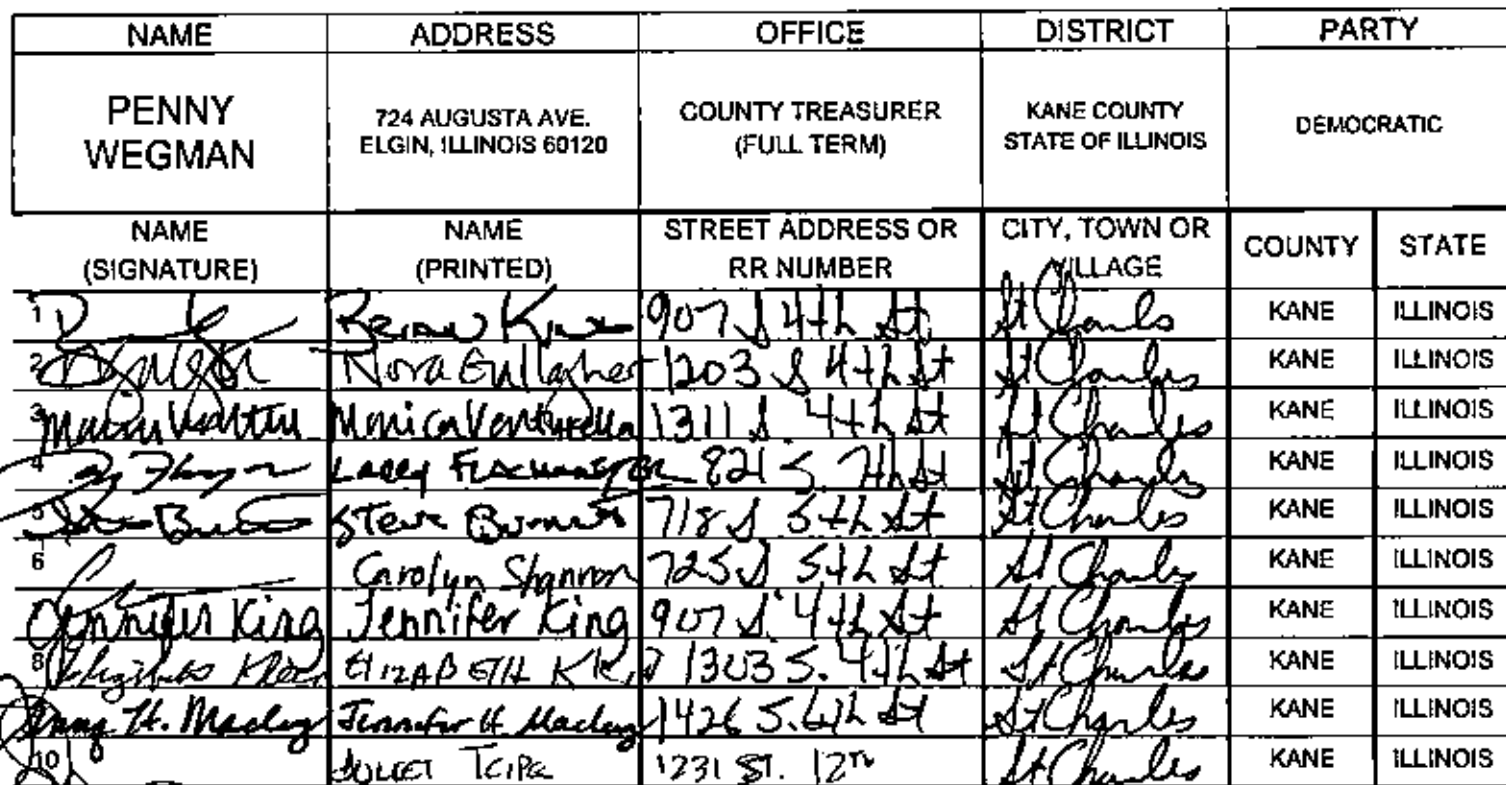 NAME ADDRESS OFFICE DISTRICT PARTY
PENNY WEGMAN 724 AUGUSTA AVE. ELGIN, ILLINOIS 60120 COUNTY TREASURER (FULL TERM) KANE COUNTY STATE OF ILLINOIS DEMOCRATIC
NAME (SIGNATURE) NAME (PRINTED) STREET ADDRESS OR RR NUMBER CITY, TOWN OR VILLAGE COUNTY STATE
1 Brian 907 S 4th St St Charles KANE ILLINOIS
2 Nora Gullagher 1203 S 4th St St Charles KANE ILLINOIS
3 Monica Venturella 1311 S. 4th St St Charles KANE ILLINOIS
4 Larry 821 S. 7th St St Charles KANE ILLINOIS
5 Steve 718 S 5th St St Charles KANE ILLINOIS
6 Carolyn Shannon 725 S 5th St St Charles KANE ILLINOIS
Jennifer King Jennifer King 907 S. 4th St St Charles KANE ILLINOIS
8 ELIZABETH 1303 S. 4th St St Charles KANE ILLINOIS
H. Jennifer H 1426 S. St St Charles KANE ILLINOIS
10 JULEET 1231 ST. 12TH St Charles KANE ILLINOIS